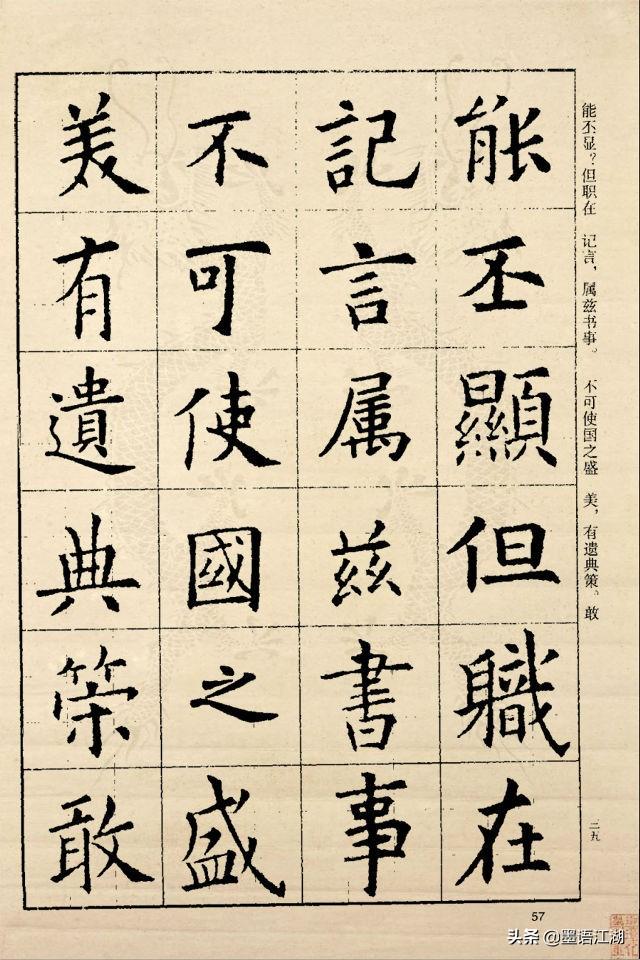 能丕顯但職在
記言属兹書事
不可使國之盛
美有遺典策敢
能丕显？但职在 记言，属兹书事。 不可使国之盛 美，有遗典策。敢
二九
57
头条 @墨语江湖